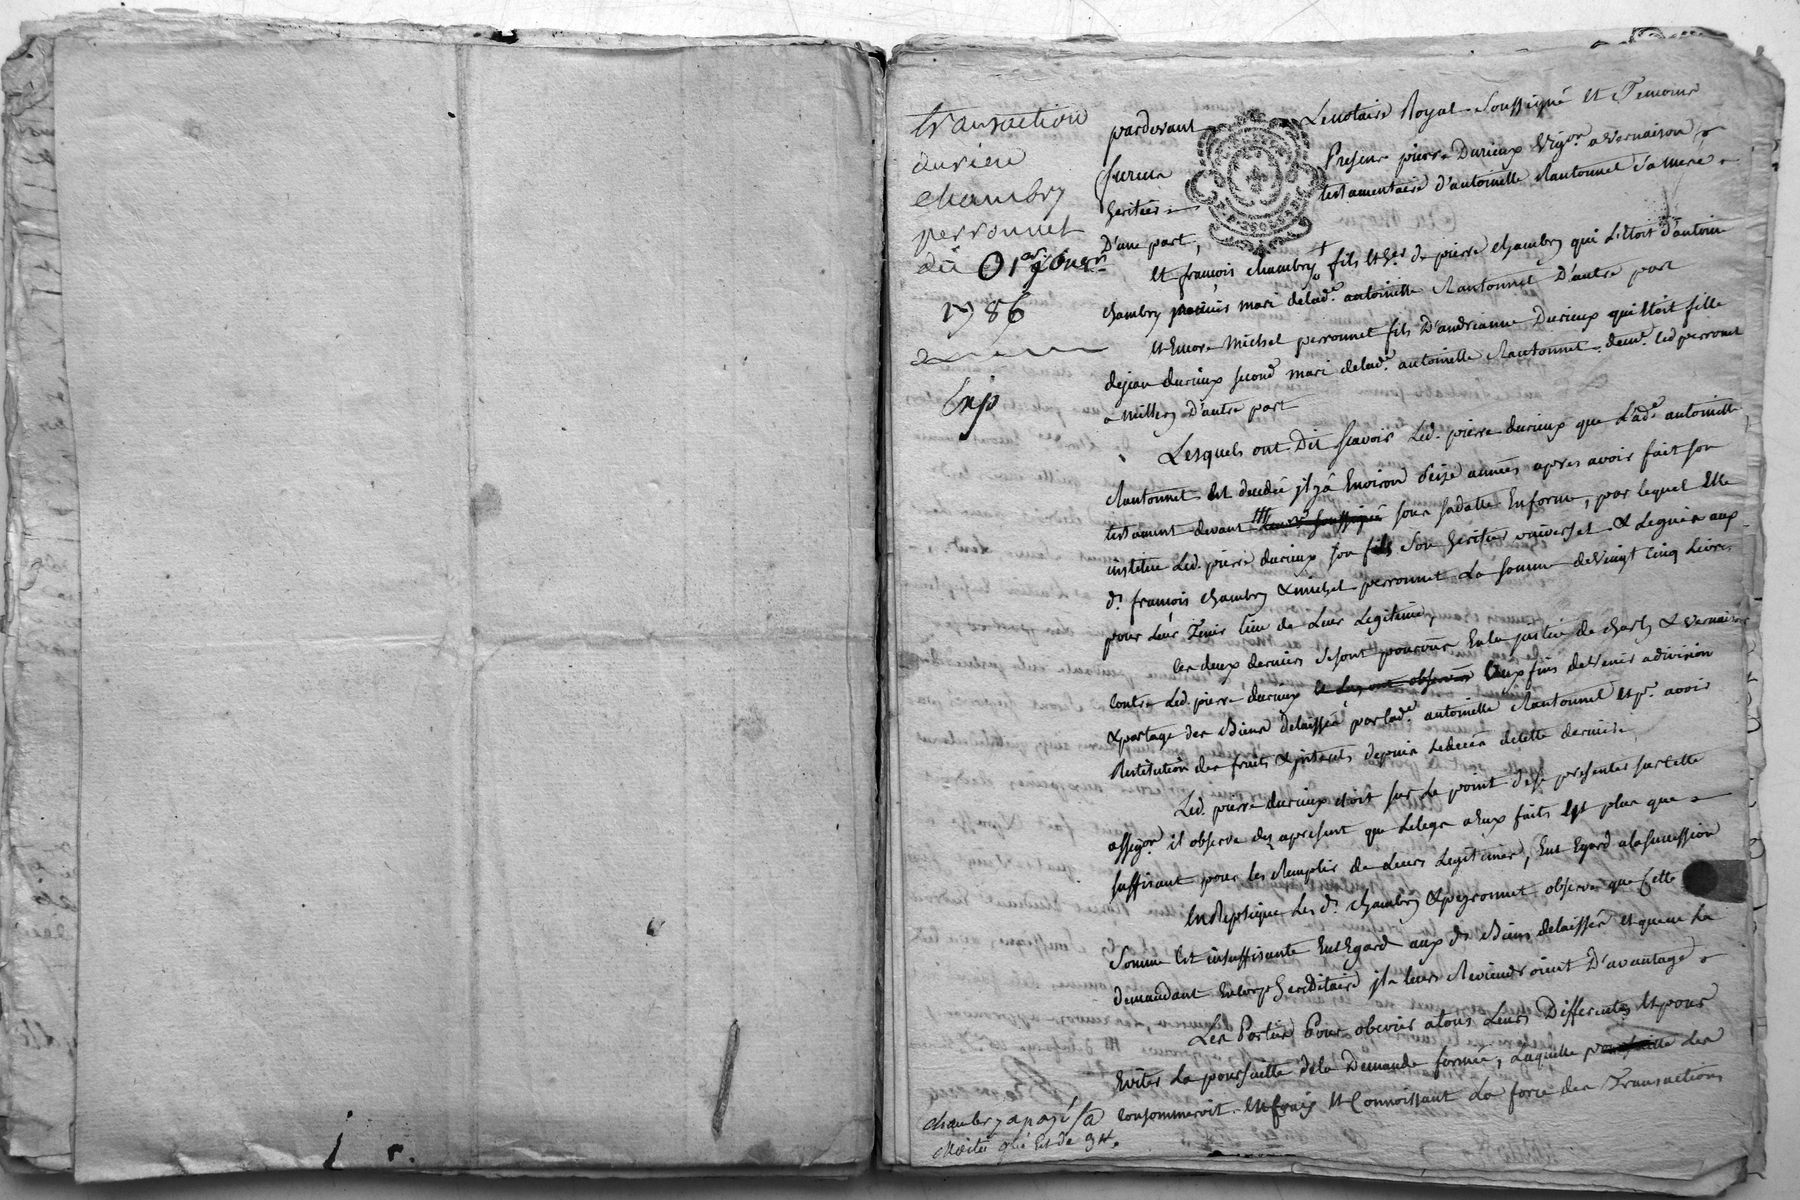 transaction
durieu
chambry
perronnet
du 01er
1786
Exp
pardevant Le notaire Royal Soussigné et Temoins
furent Presens pierre Durieux Vigon. a vernaison
heritier testamentaire d'antoinette Rantonnet sa mere
D'une part,
Et françois chambry + fils et her. de pierre chambry qui Etoit d'antoine
chambry mari de lade. antoinette Rantonnet D'autre part
Et Encore Michel perronnet fils D'andrianne Durieux qui Etoit fille
de jean durieux second mari de lade. antoinette Rantonnet. demt. led perronnet
a Millery D'autre part
Lesquels ont Dit scavoir Led. pierre durieux que Lade. antoinette
Rantonnet Est decedée il y a Environ seize années apres avoir fait son
testament devant Me sous sa datte En forme, par lequel Elle
institue Led. pierre durieux son fils Son heritier universel & Legue aux
ds. françois chambry & michel perronnet La somme de Vingt Cinq Livres
pour Leur Tenir lieu de Leur Legitime,
les deux derniers se sont pourvus En la justice de charly & vernaison
contre Led. pierre durieux aux fins de Venir a division
& partage des Biens delaissés par lade. antoinette Rantonnet et pr. avoir
Restitution des fruits & interets depuis Le decés de cette derniere
Led. pierre durieux etoit sur Le point de se presenter sur cette
assigon. il observe des apresent que Le legs a Eux faits Est plus que
suffisant pour les Remplir de Leurs Legitimes, Eut Egard a la succession
En Replique Les ds. chambry & peyronnet observe que Cette
Somme Est insuffisante Eut Egard aux ds Biens delaissés et que en La
demandant En corps hereditaire il leurs Reviendroient D'avantage
Les Parties Pour obvier a tous Leurs Differents Et pour
Eviter La poursuitte de la Demande formée, Laquelle Les
consommeroit En frais Et Connoissant La force des Transactions
chambry a payé sa
Moitié qui Est de 3#.